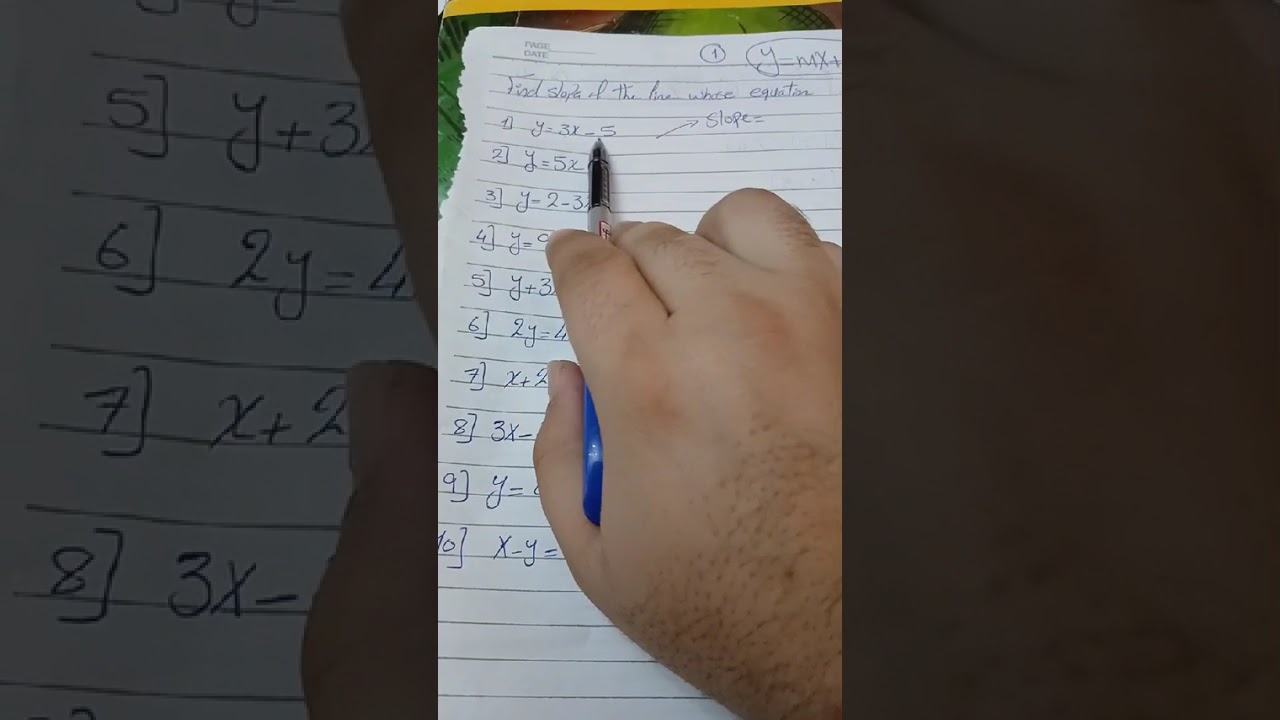 PAGE
DATE
① y=mx+
Find slope of the line whose equation
1] y=3x-5 → Slope=
2] y=5x
3] y=2-3
4] y=
5] y+3
6] 2y=4
7] x+2
8] 3x-
9] y=
10] x-y=
5] y+3x
6] 2y=4
7] x+2
8] 3x-